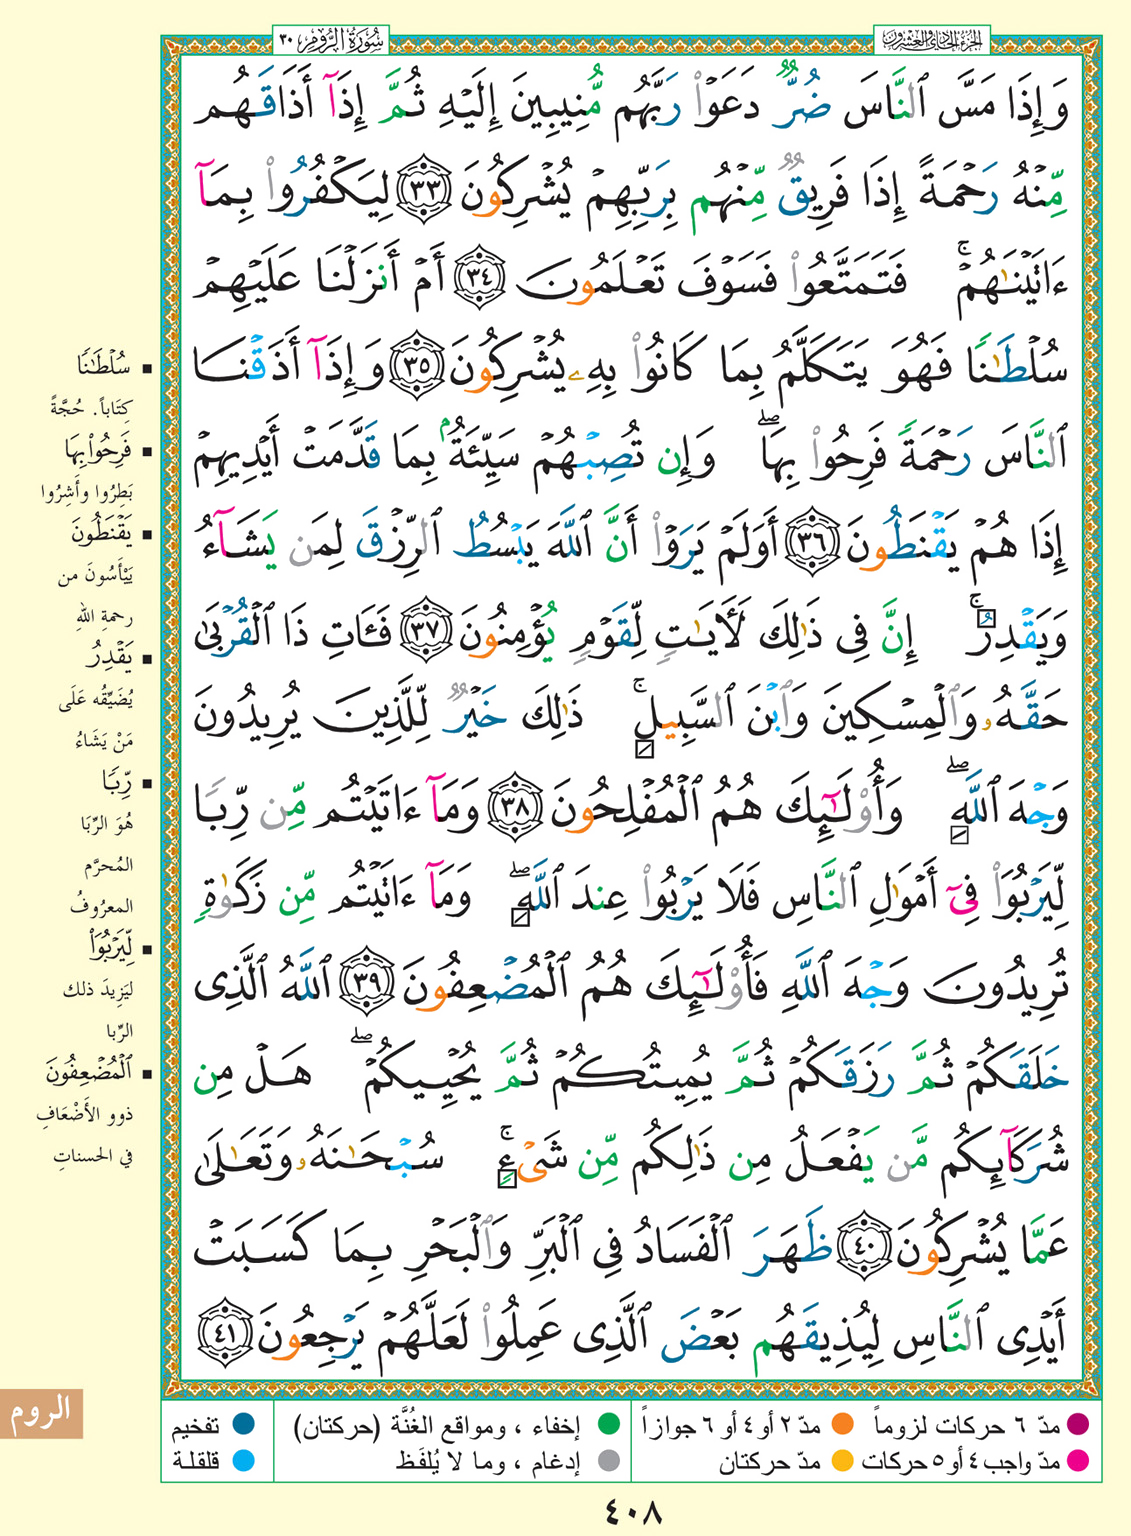 الجزء الحادي والعشرون
سُورَةُ الرُّومِ ٣٠
وَإِذَا مَسَّ ٱلنَّاسَ ضُرٌّ دَعَوْا۟ رَبَّهُم مُّنِيبِينَ إِلَيْهِ ثُمَّ إِذَآ أَذَاقَهُم
مِّنْهُ رَحْمَةً إِذَا فَرِيقٌ مِّنْهُم بِرَبِّهِمْ يُشْرِكُونَ ٣٣ لِيَكْفُرُوا۟ بِمَآ
ءَاتَيْنَٰهُمْ ۚ فَتَمَتَّعُوا۟ فَسَوْفَ تَعْلَمُونَ ٣٤ أَمْ أَنزَلْنَا عَلَيْهِمْ
سُلْطَٰنًا فَهُوَ يَتَكَلَّمُ بِمَا كَانُوا۟ بِهِۦ يُشْرِكُونَ ٣٥ وَإِذَآ أَذَقْنَا
ٱلنَّاسَ رَحْمَةً فَرِحُوا۟ بِهَا ۖ وَإِن تُصِبْهُمْ سَيِّئَةٌۢ بِمَا قَدَّمَتْ أَيْدِيهِمْ
إِذَا هُمْ يَقْنَطُونَ ٣٦ أَوَلَمْ يَرَوْا۟ أَنَّ ٱللَّهَ يَبْسُطُ ٱلرِّزْقَ لِمَن يَشَآءُ
وَيَقْدِرُ ۚ إِنَّ فِى ذَٰلِكَ لَءَايَٰتٍ لِّقَوْمٍ يُؤْمِنُونَ ٣٧ فَـَٔاتِ ذَا ٱلْقُرْبَىٰ
حَقَّهُۥ وَٱلْمِسْكِينَ وَٱبْنَ ٱلسَّبِيلِ ۚ ذَٰلِكَ خَيْرٌ لِّلَّذِينَ يُرِيدُونَ
وَجْهَ ٱللَّهِ ۖ وَأُو۟لَٰٓئِكَ هُمُ ٱلْمُفْلِحُونَ ٣٨ وَمَآ ءَاتَيْتُم مِّن رِّبًا
لِّيَرْبُوَا۟ فِىٓ أَمْوَٰلِ ٱلنَّاسِ فَلَا يَرْبُوا۟ عِندَ ٱللَّهِ ۖ وَمَآ ءَاتَيْتُم مِّن زَكَوٰةٍ
تُرِيدُونَ وَجْهَ ٱللَّهِ فَأُو۟لَٰٓئِكَ هُمُ ٱلْمُضْعِفُونَ ٣٩ ٱللَّهُ ٱلَّذِى
خَلَقَكُمْ ثُمَّ رَزَقَكُمْ ثُمَّ يُمِيتُكُمْ ثُمَّ يُحْيِيكُمْ ۖ هَلْ مِن
شُرَكَآئِكُم مَّن يَفْعَلُ مِن ذَٰلِكُم مِّن شَىْءٍ ۚ سُبْحَٰنَهُۥ وَتَعَٰلَىٰ
عَمَّا يُشْرِكُونَ ٤٠ ظَهَرَ ٱلْفَسَادُ فِى ٱلْبَرِّ وَٱلْبَحْرِ بِمَا كَسَبَتْ
أَيْدِى ٱلنَّاسِ لِيُذِيقَهُم بَعْضَ ٱلَّذِى عَمِلُوا۟ لَعَلَّهُمْ يَرْجِعُونَ ٤١
▪ سُلْطَٰنًا
كِتَاباً. حُجَّةً
▪ فَرِحُوا۟ بِهَا
بَطِرُوا وأَشِرُوا
▪ يَقْنَطُونَ
يَيْأَسُونَ من
رحمةِ اللهِ
▪ يَقْدِرُ
يُضَيِّقُه عَلَى
مَنْ يَشَاءُ
▪ رِّبًا
هُوَ الرِّبَا
المُحرَّم
المعرُوفُ
▪ لِّيَرْبُوَا۟
ليَزِيدَ ذلك
الرِّبا
▪ ٱلْمُضْعِفُونَ
ذوو الأَضْعَافِ
في الحسناتِ
الروم
مدّ ٦ حركات لزوماً مدّ ٢ أو ٤ أو ٦ جوازاً إخفاء ، ومواقع الغُنَّة (حركتان) تفخيم
مدّ واجب ٤ أو ٥ حركات مدّ حركتان إدغام ، وما لا يُلفَظ قلقلة
٤٠٨